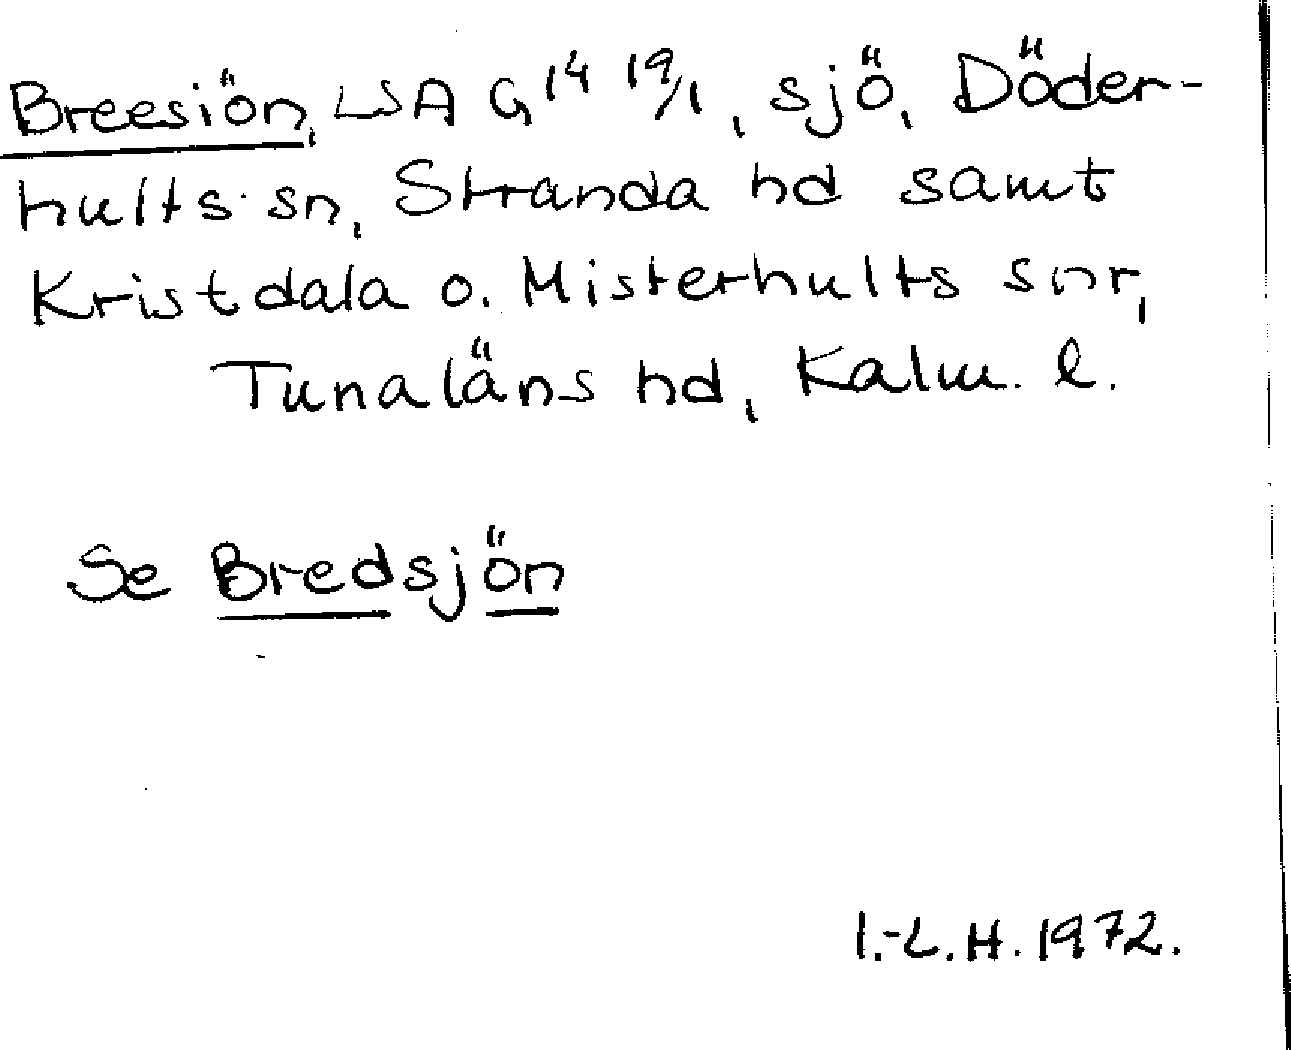 Breesiön, LSA G14 19/1, sjö, Döder-
hults sn, Stranda hd samt
Kristdala o. Misterhults snr,
Tunaläns hd, Kalm. l.
Se Bredsjön
I.-L.H. 1972.